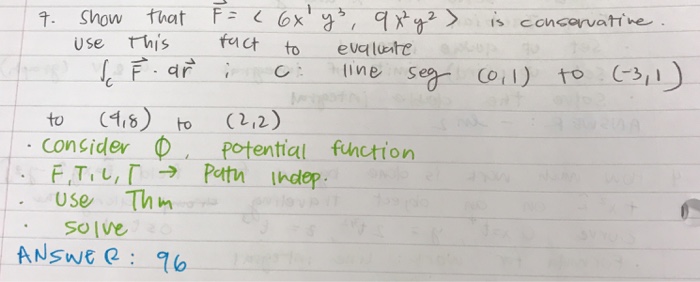 7. Show that F = < 6x¹y³, 9x²y² > is conservative.
Use this fact to evaluate
∫c F · dr ; C: line seg (0,1) to (-3,1)
to (9,8) to (2,2)
· consider Φ, potential function
· F.T.L.I → Path indep.
· Use Thm
· Solve
ANSWER: 96